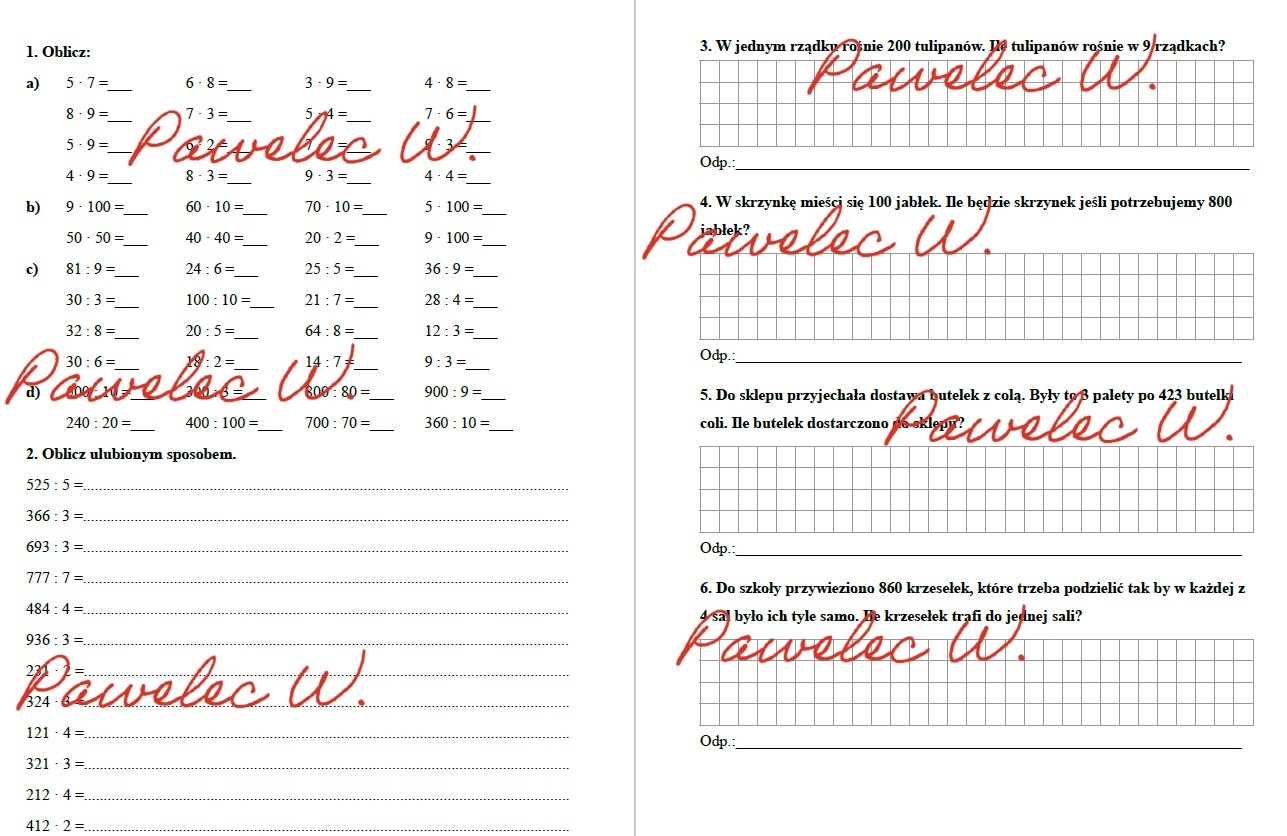 1. Oblicz:
a) 5 · 7 =___ 6 · 8 =___ 3 · 9 =___ 4 · 8 =___
8 · 9 =___ 7 · 3 =___ 5 · 4 =___ 7 · 6 =___
5 · 9 =___ 6 · 2 =___ 7 =___ · 3 =___
4 · 9 =___ 8 · 3 =___ 9 · 3 =___ 4 · 4 =___
b) 9 · 100 =___ 60 · 10 =___ 70 · 10 =___ 5 · 100 =___
50 · 50 =___ 40 · 40 =___ 20 · 2 =___ 9 · 100 =___
c) 81 : 9 =___ 24 : 6 =___ 25 : 5 =___ 36 : 9 =___
30 : 3 =___ 100 : 10 =___ 21 : 7 =___ 28 : 4 =___
32 : 8 =___ 20 : 5 =___ 64 : 8 =___ 12 : 3 =___
30 : 6 =___ 18 : 2 =___ 14 : 7 =___ 9 : 3 =___
d) : 10 =___ 300 : 3 =___ 800 : 80 =___ 900 : 9 =___
240 : 20 =___ 400 : 100 =___ 700 : 70 =___ 360 : 10 =___
2. Oblicz ulubionym sposobem.
525 : 5 =
366 : 3 =
693 : 3 =
777 : 7 =
484 : 4 =
936 : 3 =
231 · 2 =
324 · 3 =
121 · 4 =
321 · 3 =
212 · 4 =
412 · 2 =
Pawelec W.
Pawelec W.
Pawelec W.
3. W jednym rządku rośnie 200 tulipanów. Ile tulipanów rośnie w 9 rządkach?
Pawelec W.
Odp.:
4. W skrzynkę mieści się 100 jabłek. Ile będzie skrzynek jeśli potrzebujemy 800
jabłek?
Pawelec W.
Odp.:
5. Do sklepu przyjechała dostawa butelek z colą. Były to 3 palety po 423 butelki
coli. Ile butelek dostarczono do sklepu?
Pawelec W.
Odp.:
6. Do szkoły przywieziono 860 krzesełek, które trzeba podzielić tak by w każdej z
4 sal było ich tyle samo. Ile krzesełek trafi do jednej sali?
Pawelec W.
Odp.: